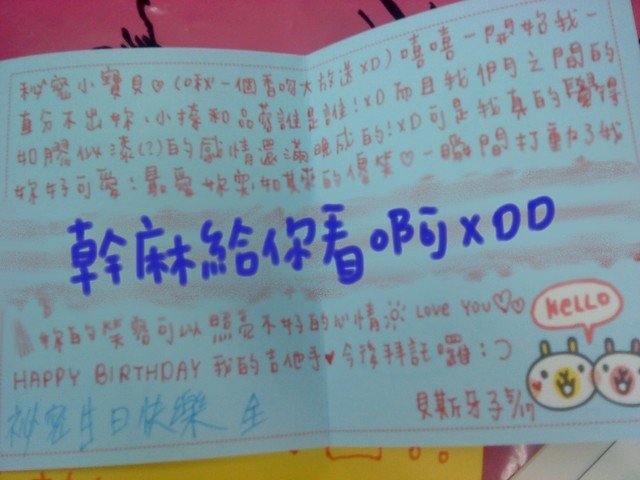 秘密小寶貝♡(啾一個香吻大放送XD)嘻嘻一開始我一
直分不出妳、小揍和品蓉誰是誰!XD而且我們之間的
如膠似漆(?)的感情還滿晚成的!XD可是我真的覺得
妳好可愛:最愛妳突如其來的傻笑♡一瞬間打動了我
幹麻給你看啊XDD
妳的笑容可以照亮不好的心情 LOVE YOU♡♡
HAPPY BIRTHDAY 我的吉他手♥今後拜託囉:)
HELLO
貝斯牙子 5/17
祕密生日快樂